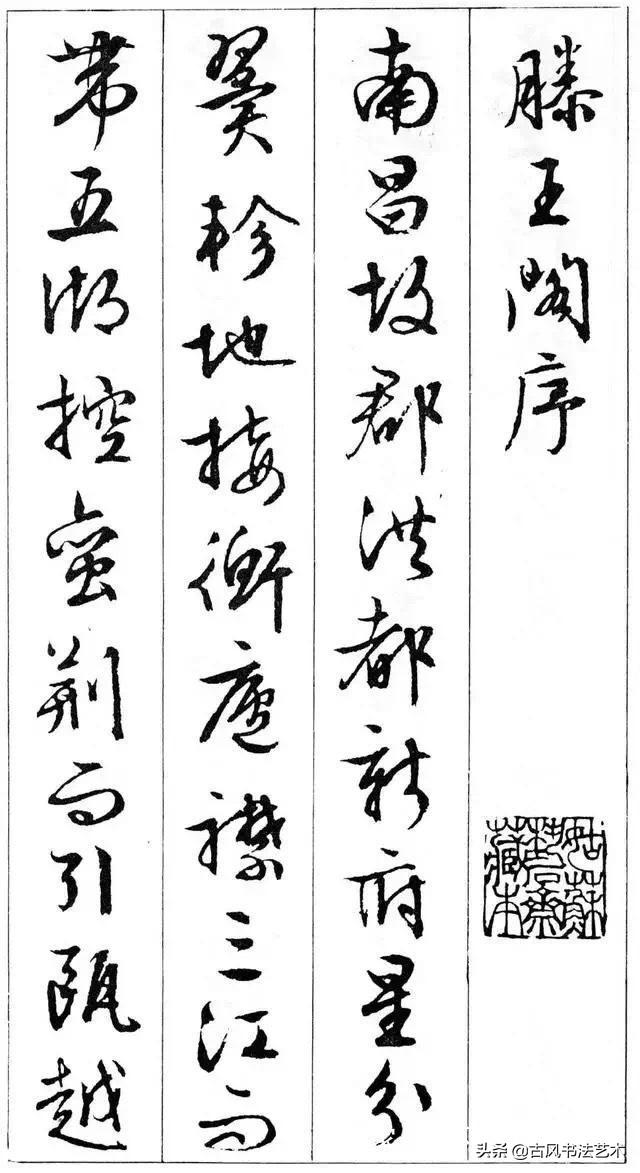 滕王閣序
南昌故郡洪都新府星分
翼軫地接衡廬襟三江而
帶五湖控蠻荊而引甌越
姑蘇
齋
藏本
头条 @古风书法艺术